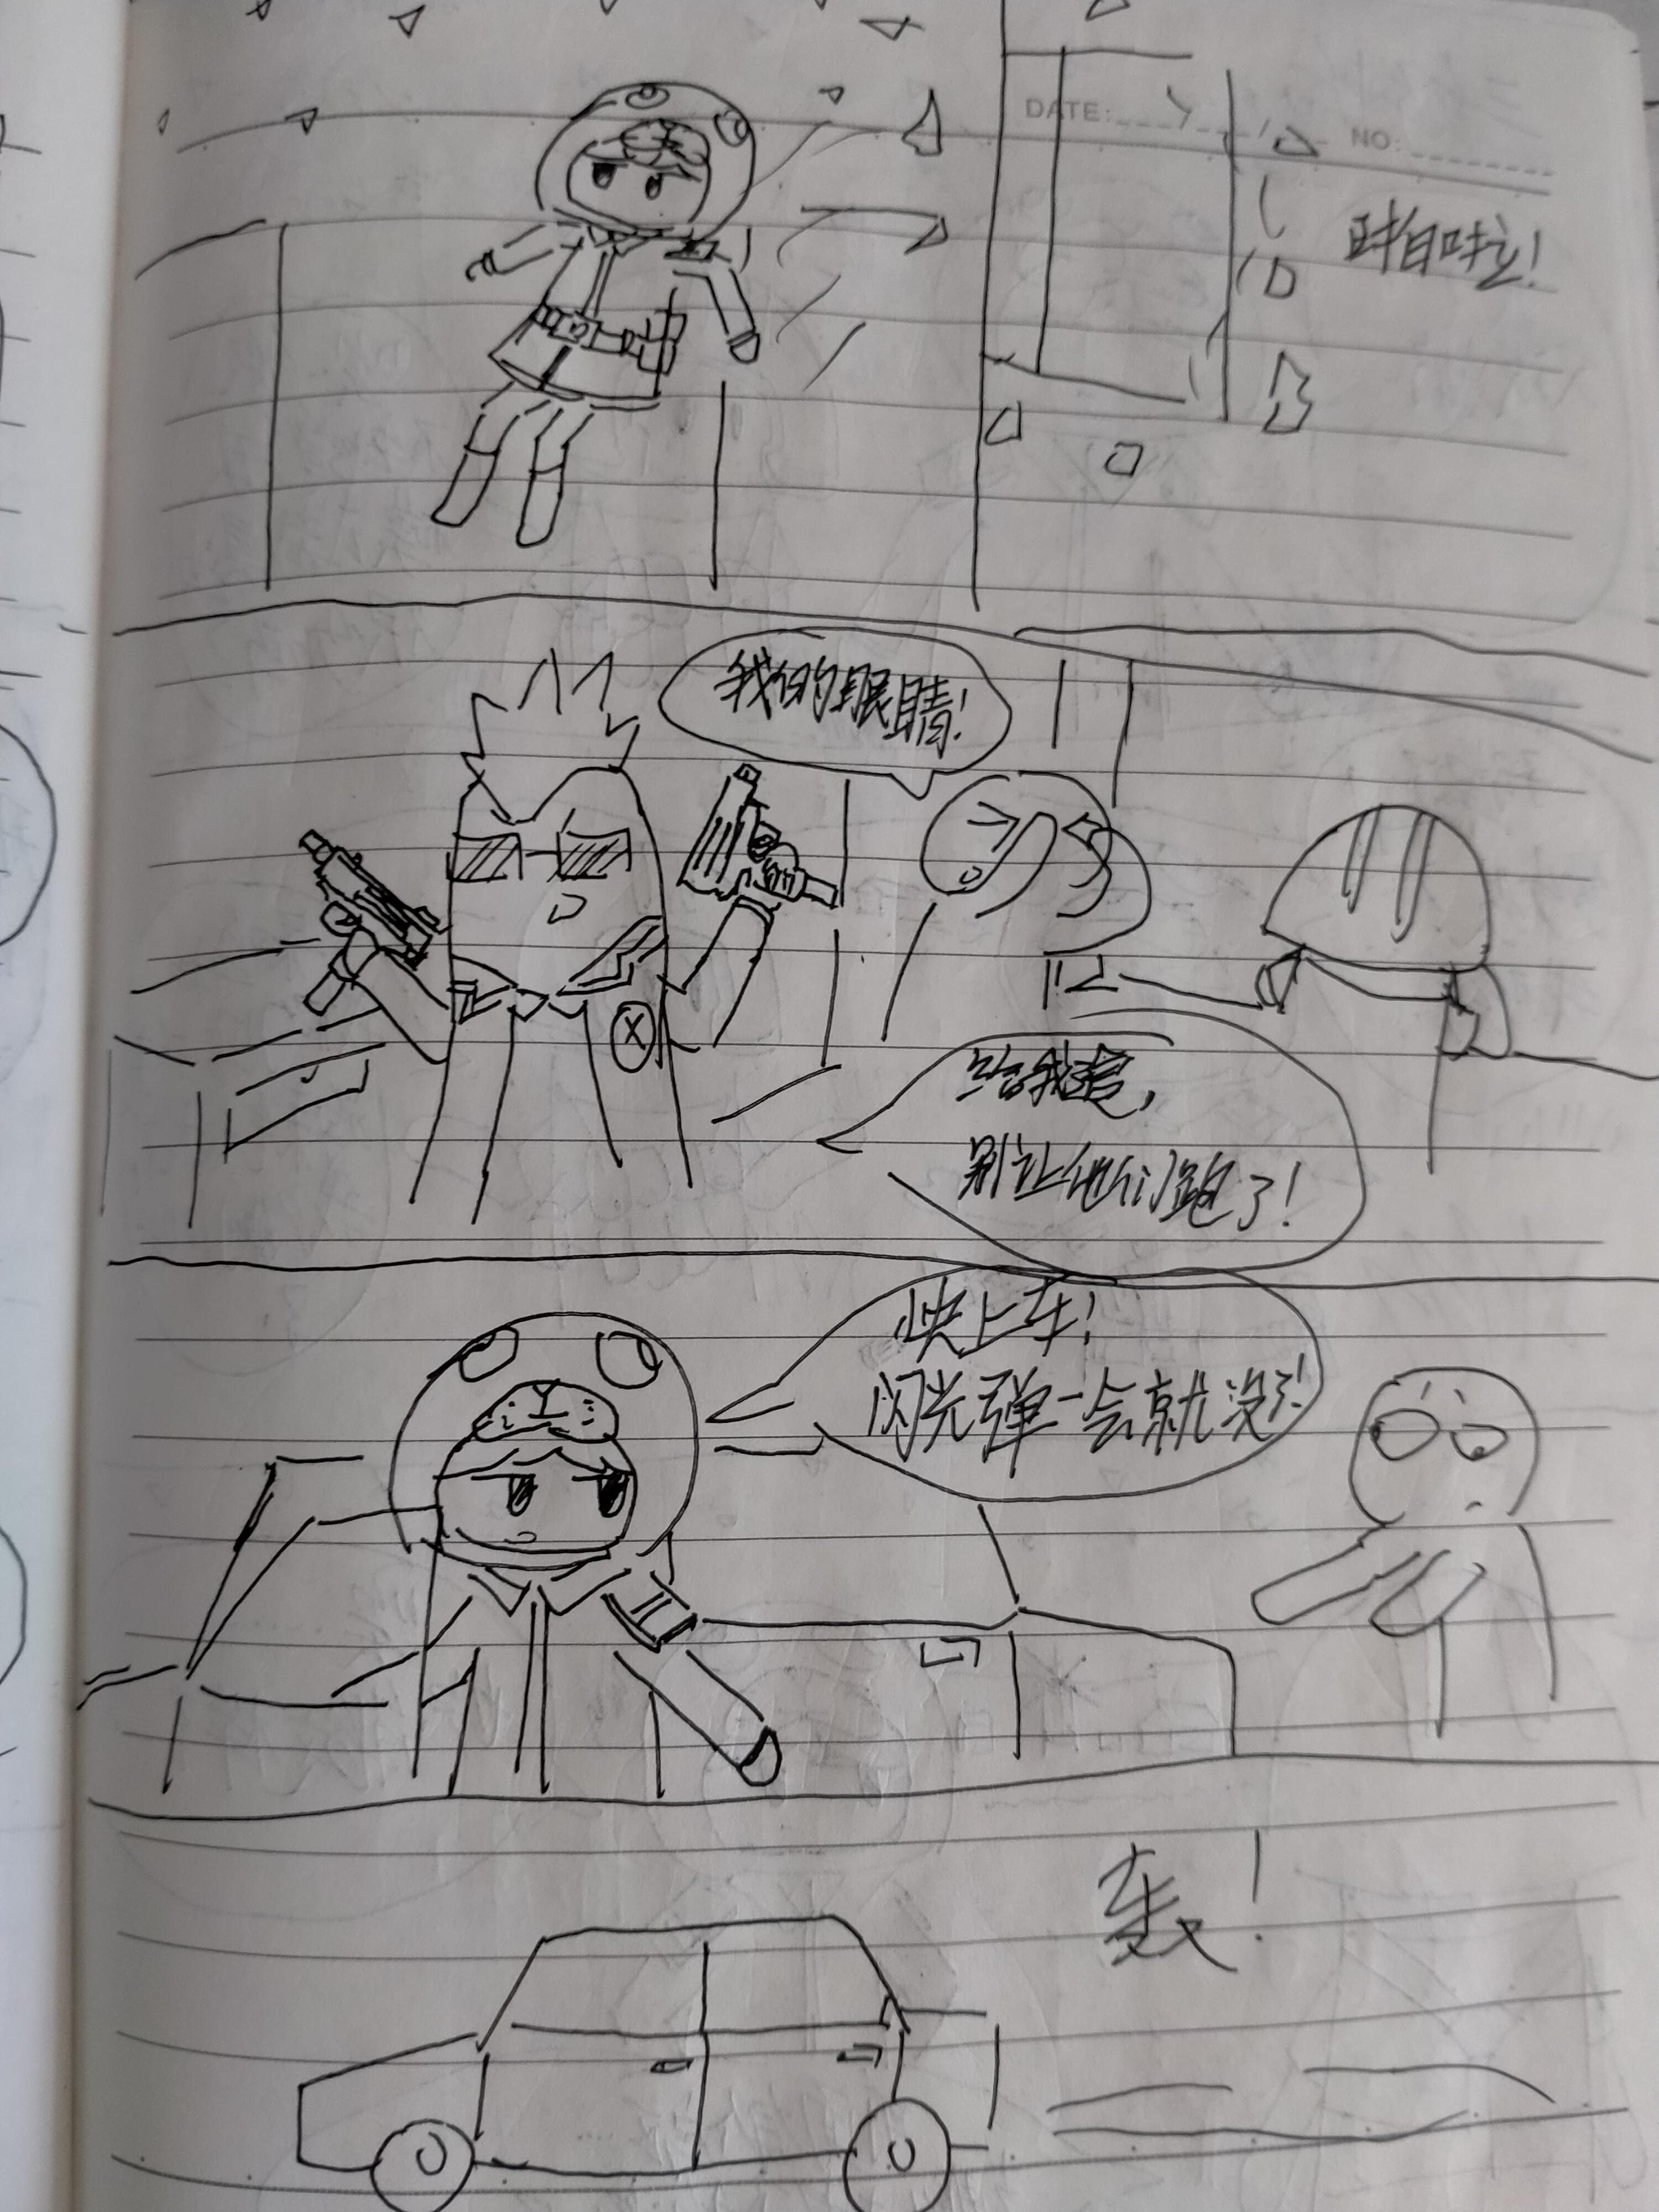 DATE: NO:
啪啦!
我的眼睛!
给我追,
别让他们跑了!
快上车!
闪光弹一会就没了!
轰!